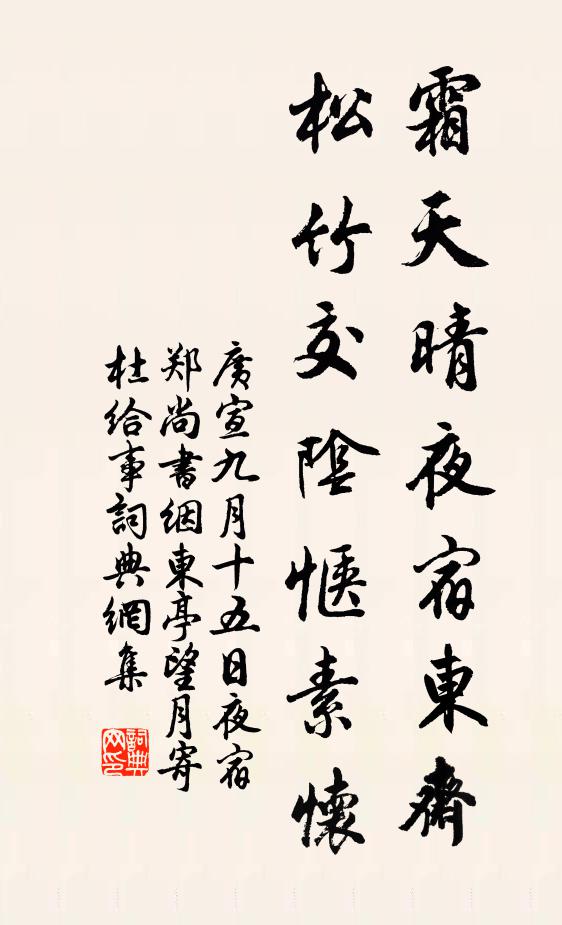 霜天晴夜宿東齋
松竹交陰愜素懷
廣宣九月十五日夜宿
郑尚書絪東亭望月寄
杜给事詞典網集
詞典网印